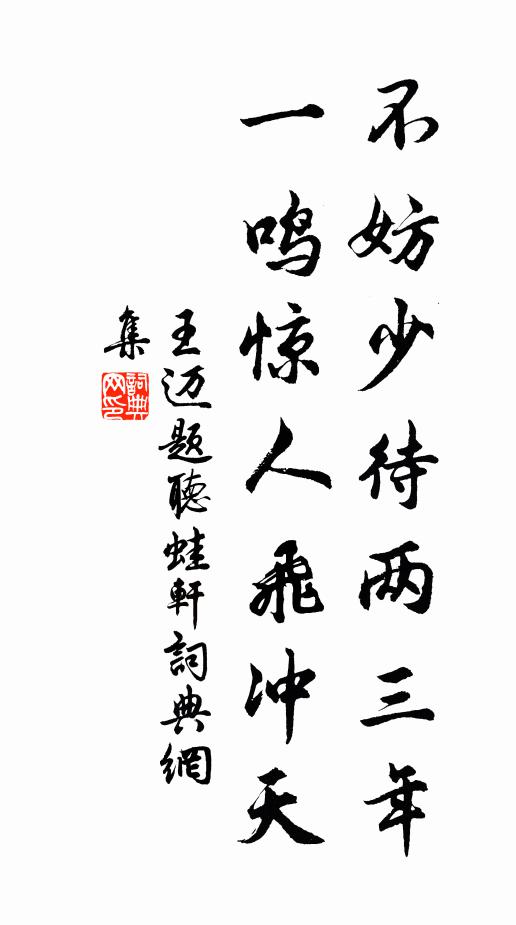 不妨少待两三年
一鸣惊人飛冲天
王迈题聽蛙軒詞典網
集
詞典
网印